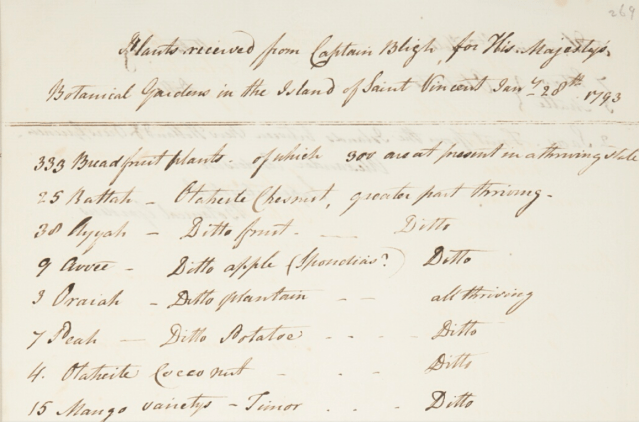 269
Plants received from Captain Bligh, for His Majesty's
Botanical Gardens in the Island of Saint Vincent Jany. 28th 1793
333 Breadfruit plants - of which 300 are at present in a thriving state
25 Rattah - Otaheite Chesnut, greater part thriving -
38 Ayyah - Ditto fruit - Ditto
9 Avvee - Ditto apple (Spondias?) Ditto
3 Oraiah - Ditto plantain - - all thriving
7 Peah - Ditto Potatoe - - - Ditto
4. Otaheite Cocco nut - - - Ditto
15 Mango varietys - Timor - - - Ditto